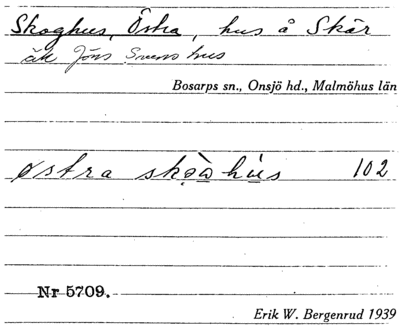 Skoghus, Östra, hus å Skär
äk Jöns Svens hus
Bosarps sn., Onsjö hd., Malmöhus län
østra skọ̀ω hu̇s 102
Nr 5709.
Erik W. Bergenrud 1939